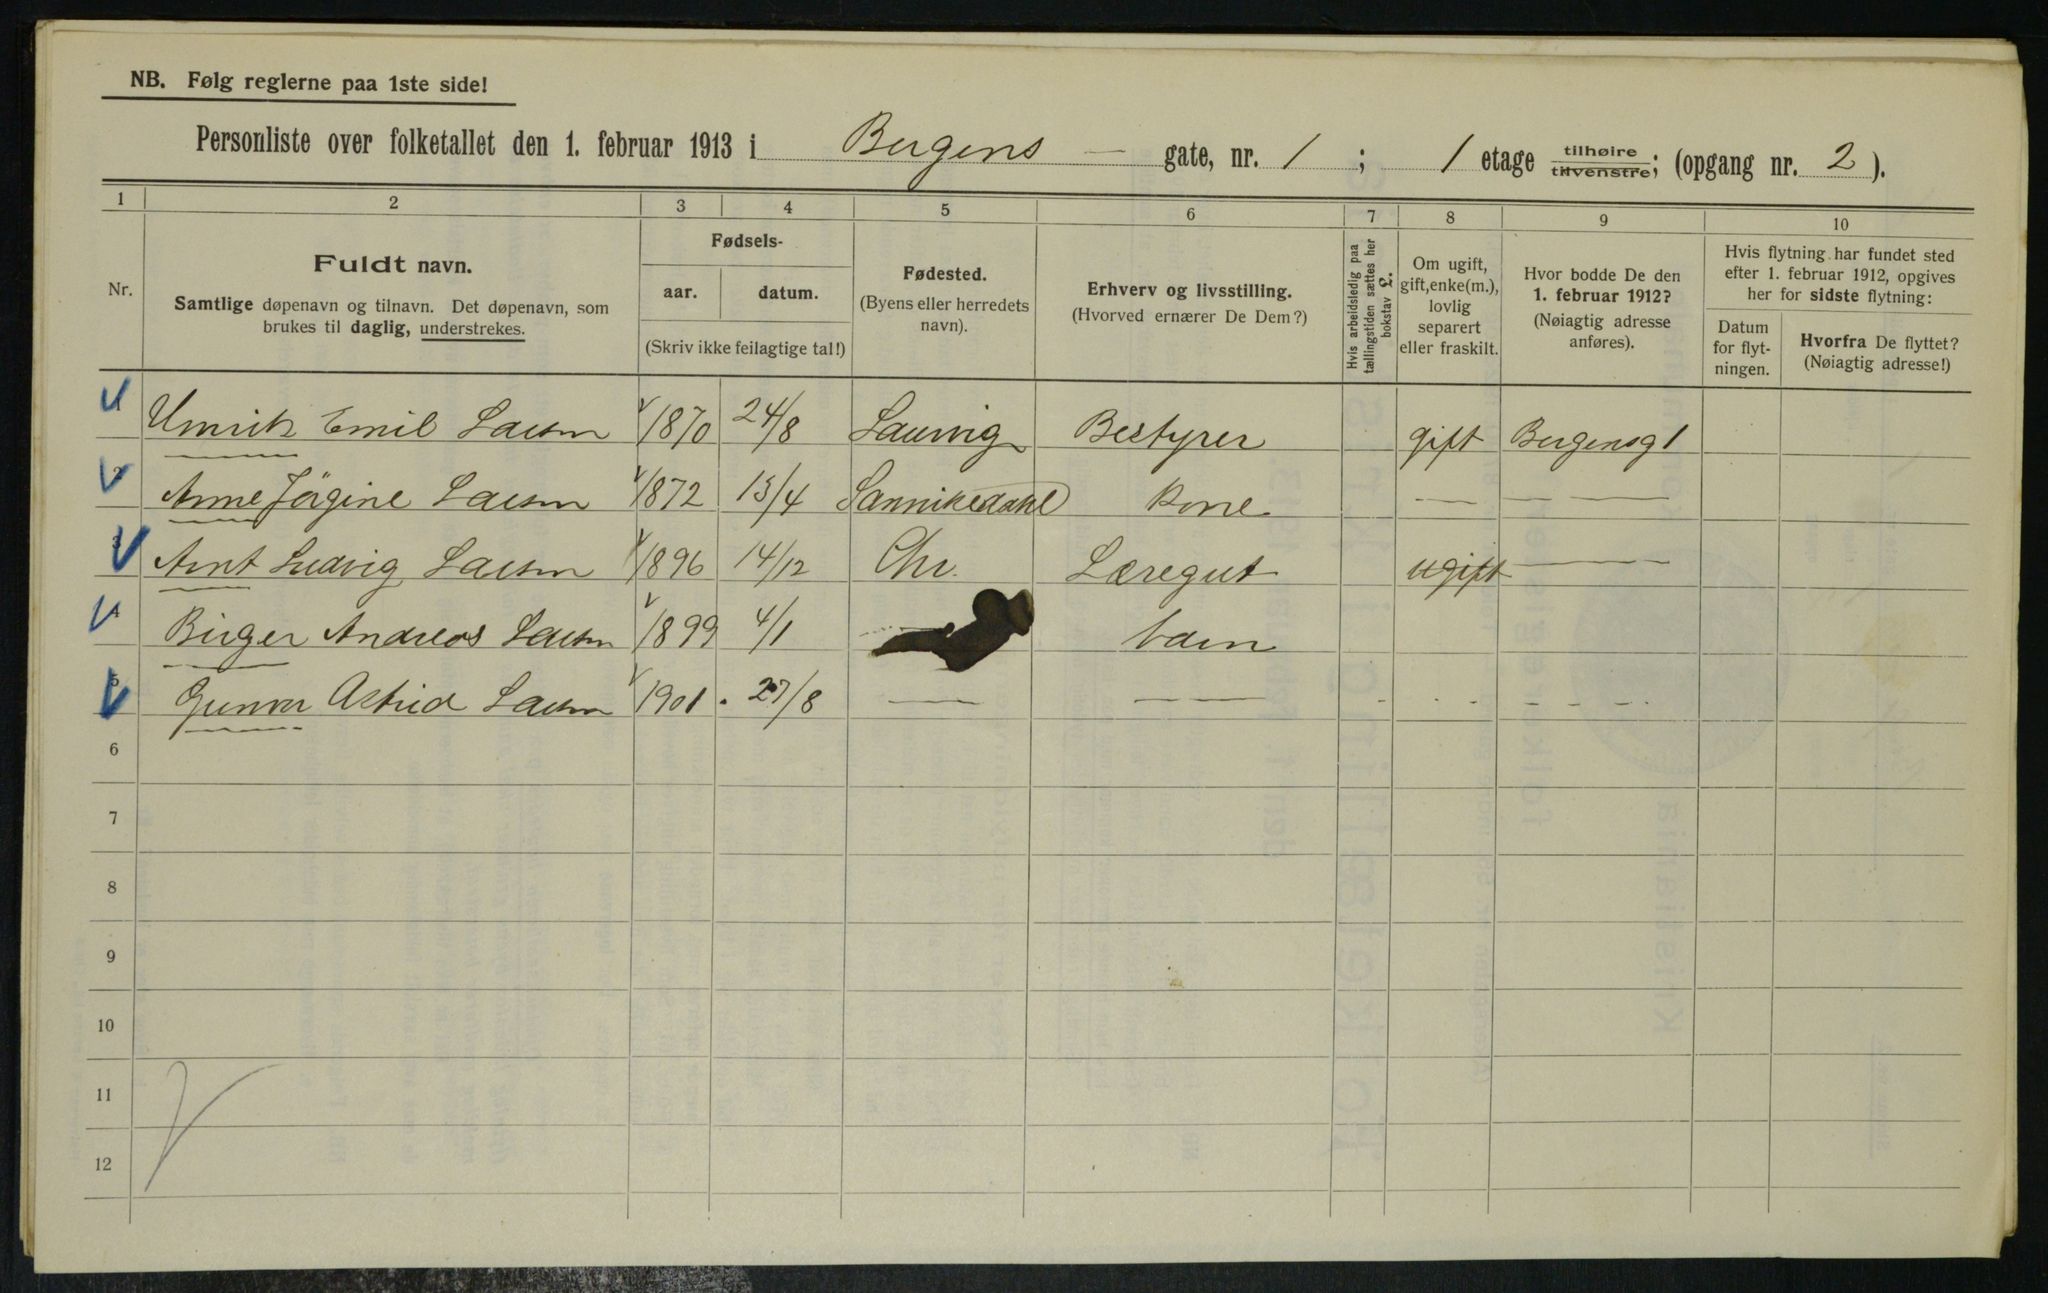 NB. Følg reglerne paa 1ste side!
Personliste over folketallet den 1. februar 1913 i Bergens — gate, nr. 1 ; 1 etage tilhøire tilvenstre; (opgang nr. 2 ).
1 2 3 4 5 6 7 8 9 10
Nr.
Fuldt navn.
Samtlige døpenavn og tilnavn. Det døpenavn, som
brukes til daglig, understrekes.
Fødsels-
aar. datum.
(Skriv ikke feilagtige tal!)
Fødested.
(Byens eller herredets
navn).
Erhverv og livsstilling.
(Hvorved ernærer De Dem?)
Hvis arbeidsledig paa
tællingstiden sættes her
bokstav £.
Om ugift,
gift, enke(m.),
lovlig
separert
eller fraskilt.
Hvor bodde De den
1. februar 1912?
(Nøiagtig adresse
anføres).
Hvis flytning har fundet sted
efter 1. februar 1912, opgives
her for sidste flytning:
Datum
for flyt-
ningen.
Hvorfra De flyttet?
(Nøiagtig adresse!)
1 Emil Larsen 1870 24/8 Laurvig Bestyrer gift Bergensg 1
2 Anne Jörgine Larsen 1872 13/4 Sannikedahl Kone — — —
3 Arnt Ludvig Larsen 1896 14/12 Chr. Læregut ugift —
4 Birger Andreas Larsen 1899 4/1 barn
5 Gunvor Astrid Larsen 1901. 27/8 — — — - - - - - -
6
7
8
9
10
11
12